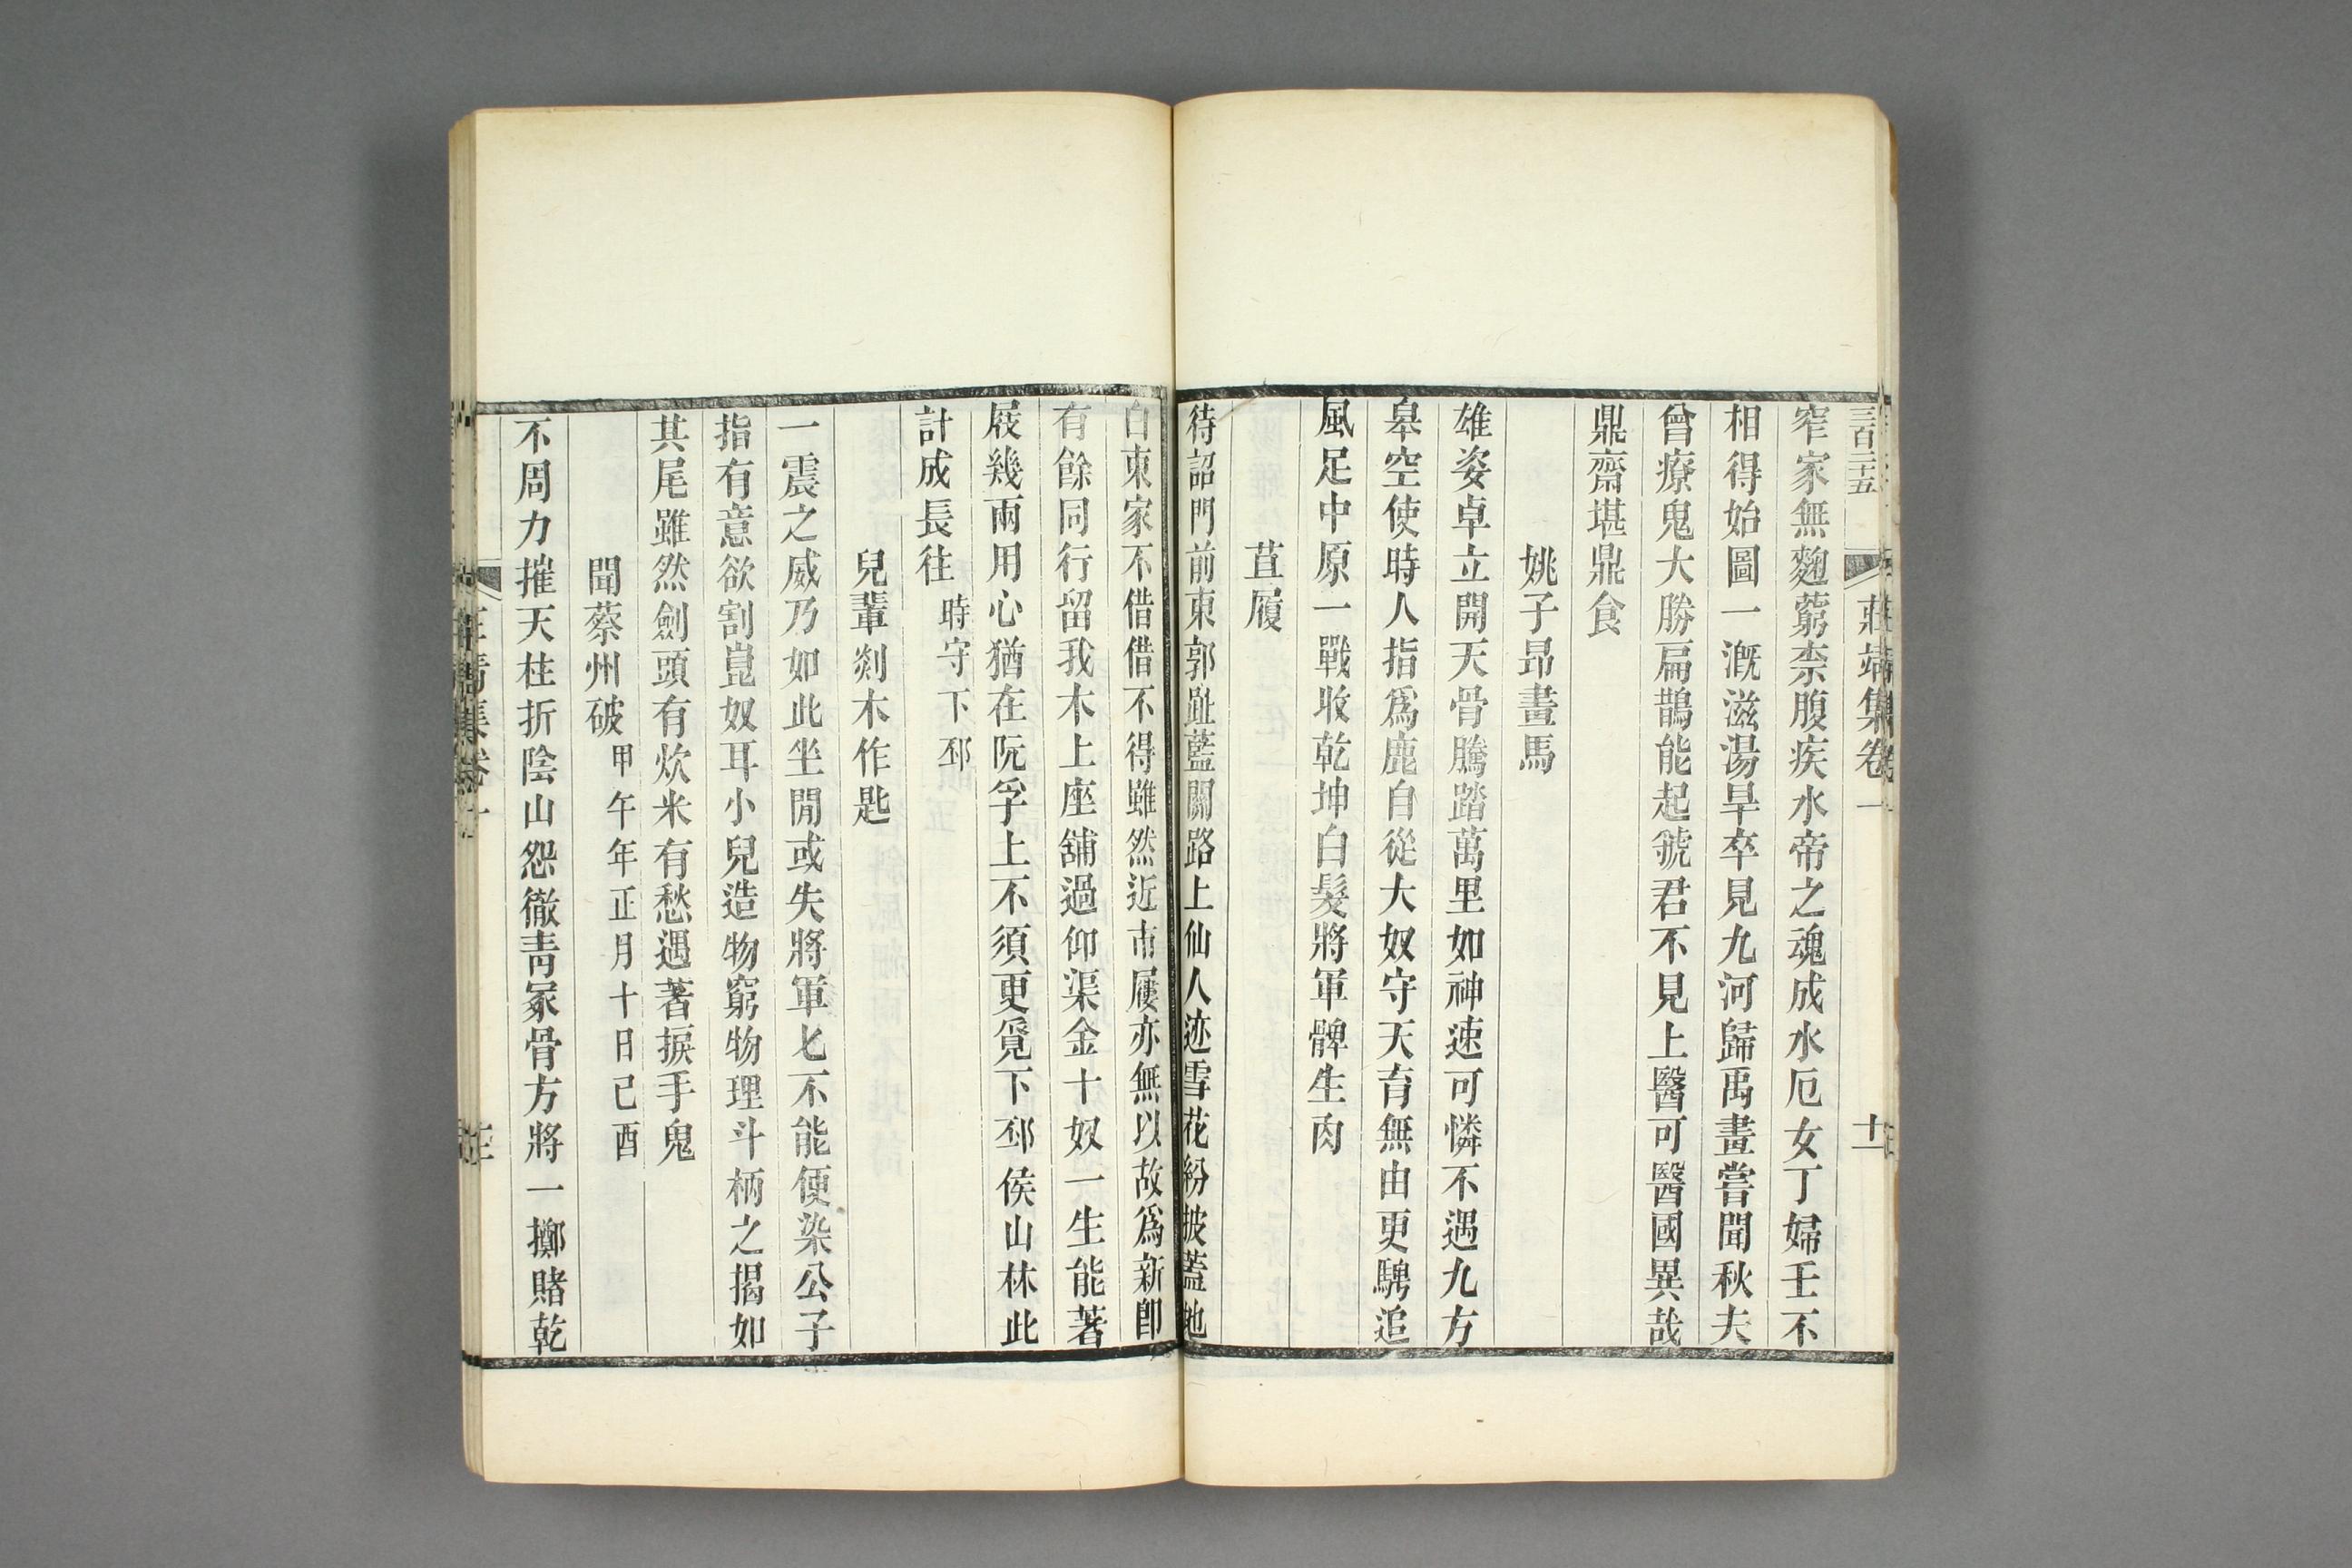 三百二十五
莊靖集卷一
十一
窄家無麴藭柰腹疾水帝之魂成水厄女丁婦壬不
相得始圖一溉滋湯旱卒見九河歸禹畫嘗聞秋夫
曾療鬼大勝扁鵲能起虢君不見上醫可醫國異哉
鼎齋堪鼎食
姚子昂畫馬
雄姿卓立開天骨騰踏萬里如神速可憐不遇九方
皋空使時人指爲鹿自從大奴守天育無由更騁追
風足中原一戰收乾坤白髮將軍髀生肉
苴履
待詔門前東郭趾藍關路上仙人迹雪花紛披蓋地
白東家不借借不得雖然近市屨亦無以故爲新卽
有餘同行留我木上座舖過仰渠金十奴一生能著
屐幾兩用心猶在阮孚上不須更覓下邳侯山林此
計成長往時守下邳
兒輩剡木作匙
一震之威乃如此坐閒或失將軍匕不能便染公子
指有意欲割崑奴耳小兒造物窮物理斗柄之揭如
其尾雖然劍頭有炊米有愁遇著捩手鬼
聞蔡州破甲午年正月十日己酉
不周力摧天柱折陰山怨徹青冢骨方將一擲賭乾